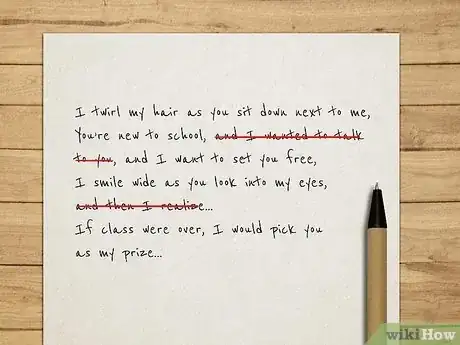 I twirl my hair as you sit down next to me,
You're new to school, and I wanted to talk
to you, and I want to set you free,
I smile wide as you look into my eyes,
and then I realize...
If class were over, I would pick you
as my prize...
wikiHow